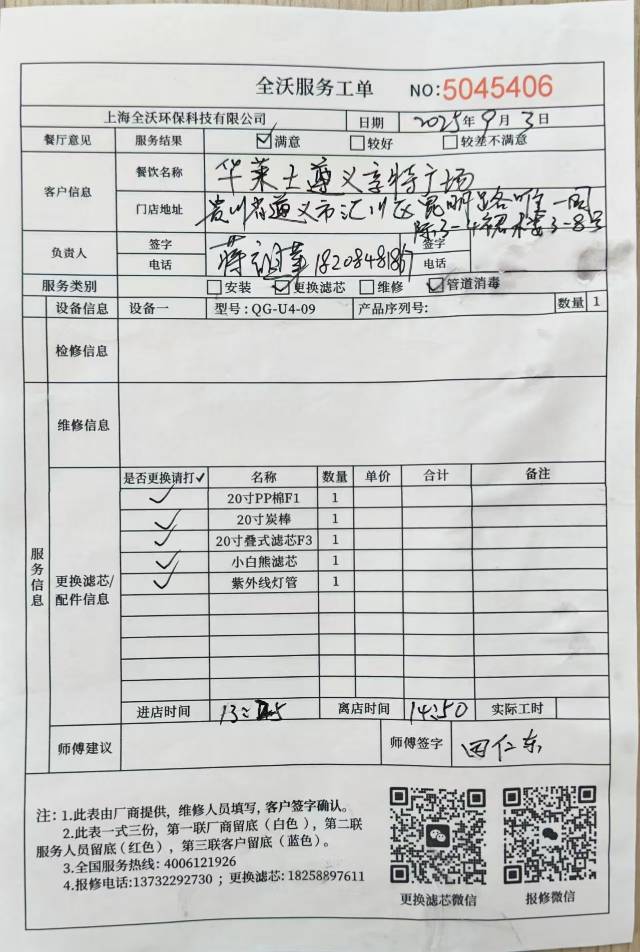 全沃服务工单 NO:5045406
上海全沃环保科技有限公司 日期 2025年9月3日
餐厅意见 服务结果 ☑满意 □较好 □较差不满意
客户信息 餐饮名称 华莱士遵义亨特广场
门店地址 贵川省遵义市汇川区昆明路唯一国
际3-4裙楼3-8号
负责人 签字 签字
电话 电话
服务类别 □安装 ☑更换滤芯 □维修 ☑管道消毒
设备信息 设备一 型号:QG-U4-09 产品序列号: 数量 1
检修信息
维修信息
服务信息
更换滤芯/配件信息
是否更换请打✓ 名称 数量 单价 合计 备注
✓ 20寸PP棉F1 1
✓ 20寸炭棒 1
✓ 20寸叠式滤芯F3 1
✓ 小白熊滤芯 1
✓ 紫外线灯管 1
进店时间 离店时间 14:50 实际工时
师傅建议 师傅签字 田仁东
注:1.此表由厂商提供,维修人员填写,客户签字确认。
2.此表一式三份,第一联厂商留底(白色),第二联
服务人员留底(红色),第三联客户留底(蓝色)。
3.全国服务热线:4006121926
4.报修电话:13732292730;更换滤芯:18258897611
更换滤芯微信 报修微信